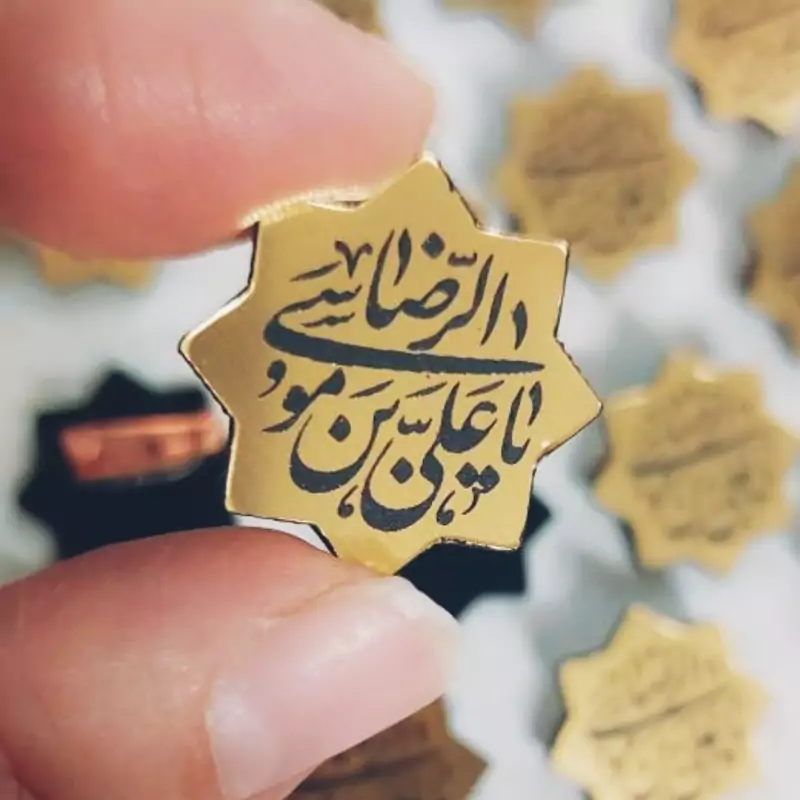 یا علیّ بن موسی الرّضا